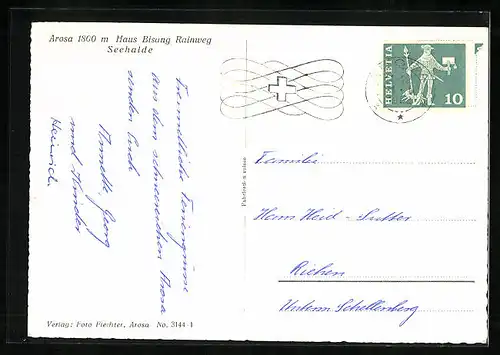 Arosa 1800 m Haus Bisung Rainweg
Seehalde
Freundliche Feriengrüsse
aus dem schneereichen Arosa
senden Euch
Annette, Georg
und Kinder
Heinrich
HELVETIA
10
Familie
Hans Heid-Sutter
Riehen
Unterm Schellenberg
Verlag: Foto Fiechter, Arosa No. 3144-1